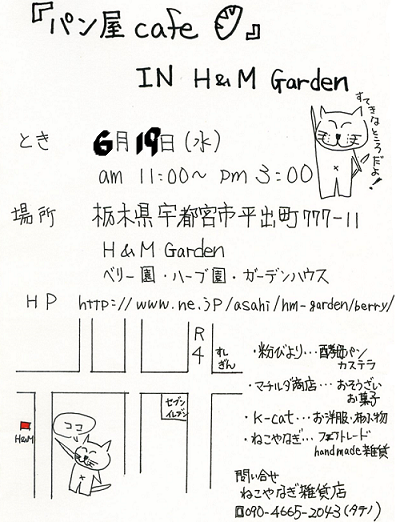 『パン屋 cafe 』
IN H&M Garden
すてきなところだよ!
とき 6月19日(水)
am 11:00~ pm 3:00
場所 栃木県宇都宮市平出町777-11
H&M Garden
ベリー園・ハーブ園・ガーデンハウス
HP http://www.ne.jp/asahi/hm-garden/berry/
R4
すしぎん
セブンイレブン
H&M
ココ
・粉びより…酵母パン
カステラ
・マチルダ商店…おそうざい
お菓子
・K-cat…お洋服・布小物
・ねこやなぎ…フェアトレード
handmade雑貨
問い合せ
ねこやなぎ雑貨店
090-4665-2043(タテノ)